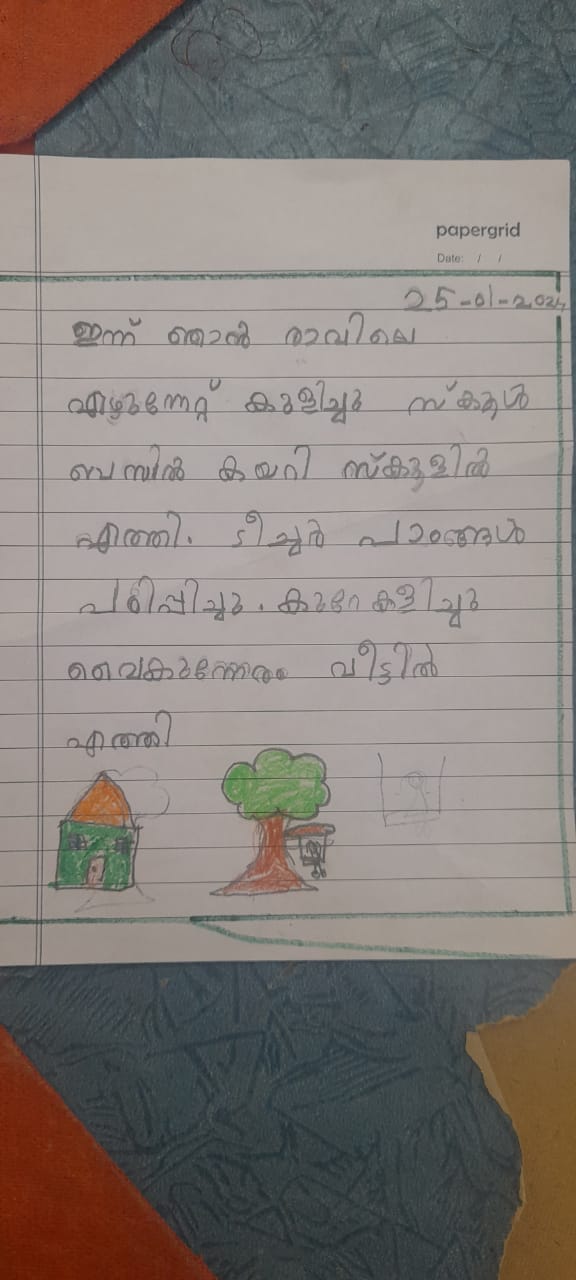 papergrid
Date: / /
25-01-2024
ഇന്ന് ഞാൻ രാവിലെ
എഴുന്നേറ്റ് കുളിച്ചു സ്കൂൾ
ബസിൽ കയറി സ്കൂളിൽ
എത്തി. ടീച്ചർ പാഠങ്ങൾ
പഠിപ്പിച്ചു. കുറേ കളിച്ചു
വൈകുന്നേരം വീട്ടിൽ
എത്തി